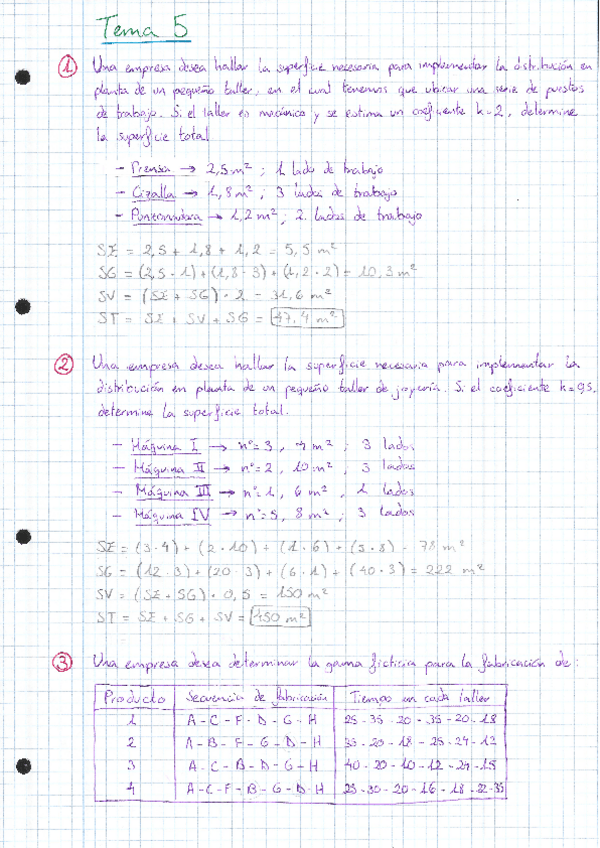 Tema 5
① Una empresa desea hallar la superficie necesaria para implementar la distribución en
planta de un pequeño taller, en el cual tenemos que ubicar una serie de puestos
de trabajo. Si el taller es mecánico y se estima un coeficiente k=2, determine
la superficie total
- Prensa → 2,5 m² ; 1 lado de trabajo
- Cizalla → 1,8 m² ; 3 lados de trabajo
- Punzonadora → 1,2 m² ; 2 lados de trabajo
SE = 2,5 + 1,8 + 1,2 = 5,5 m²
SG = (2,5 · 1) + (1,8 · 3) + (1,2 · 2) = 10,3 m²
SV = (SE + SG) · 2 = 31,6 m²
ST = SE + SV + SG = 47,4 m²
② Una empresa desea hallar la superficie necesaria para implementar la
distribución en planta de un pequeño taller de joyería. Si el coeficiente k=0,5,
determine la superficie total.
- Máquina I → nº=3, 4 m² ; 3 lados
- Máquina II → nº=2, 10 m² ; 3 lados
- Máquina III → nº=1, 6 m² , 1 lados
- Máquina IV → nº=5, 8 m² ; 3 lados
SE = (3·4) + (2·10) + (1·6) + (5·8) = 78 m²
SG = (12·3) + (20·3) + (6·1) + (40·3) = 222 m²
SV = (SE + SG) · 0,5 = 150 m²
ST = SE + SG + SV = 450 m²
③ Una empresa desea determinar la gama ficticia para la fabricación de:
Producto Secuencia de fabricación Tiempo en cada taller
1 A - C - F - D - G - H 25 - 35 - 20 - 35 - 20 - 18
2 A - B - F - G - D - H 35 - 20 - 18 - 25 - 24 - 12
3 A - C - B - D - G - H 40 - 20 - 10 - 12 - 24 - 15
4 A - C - F - B - G - D - H 25 - 30 - 20 - 16 - 18 - 22 - 35